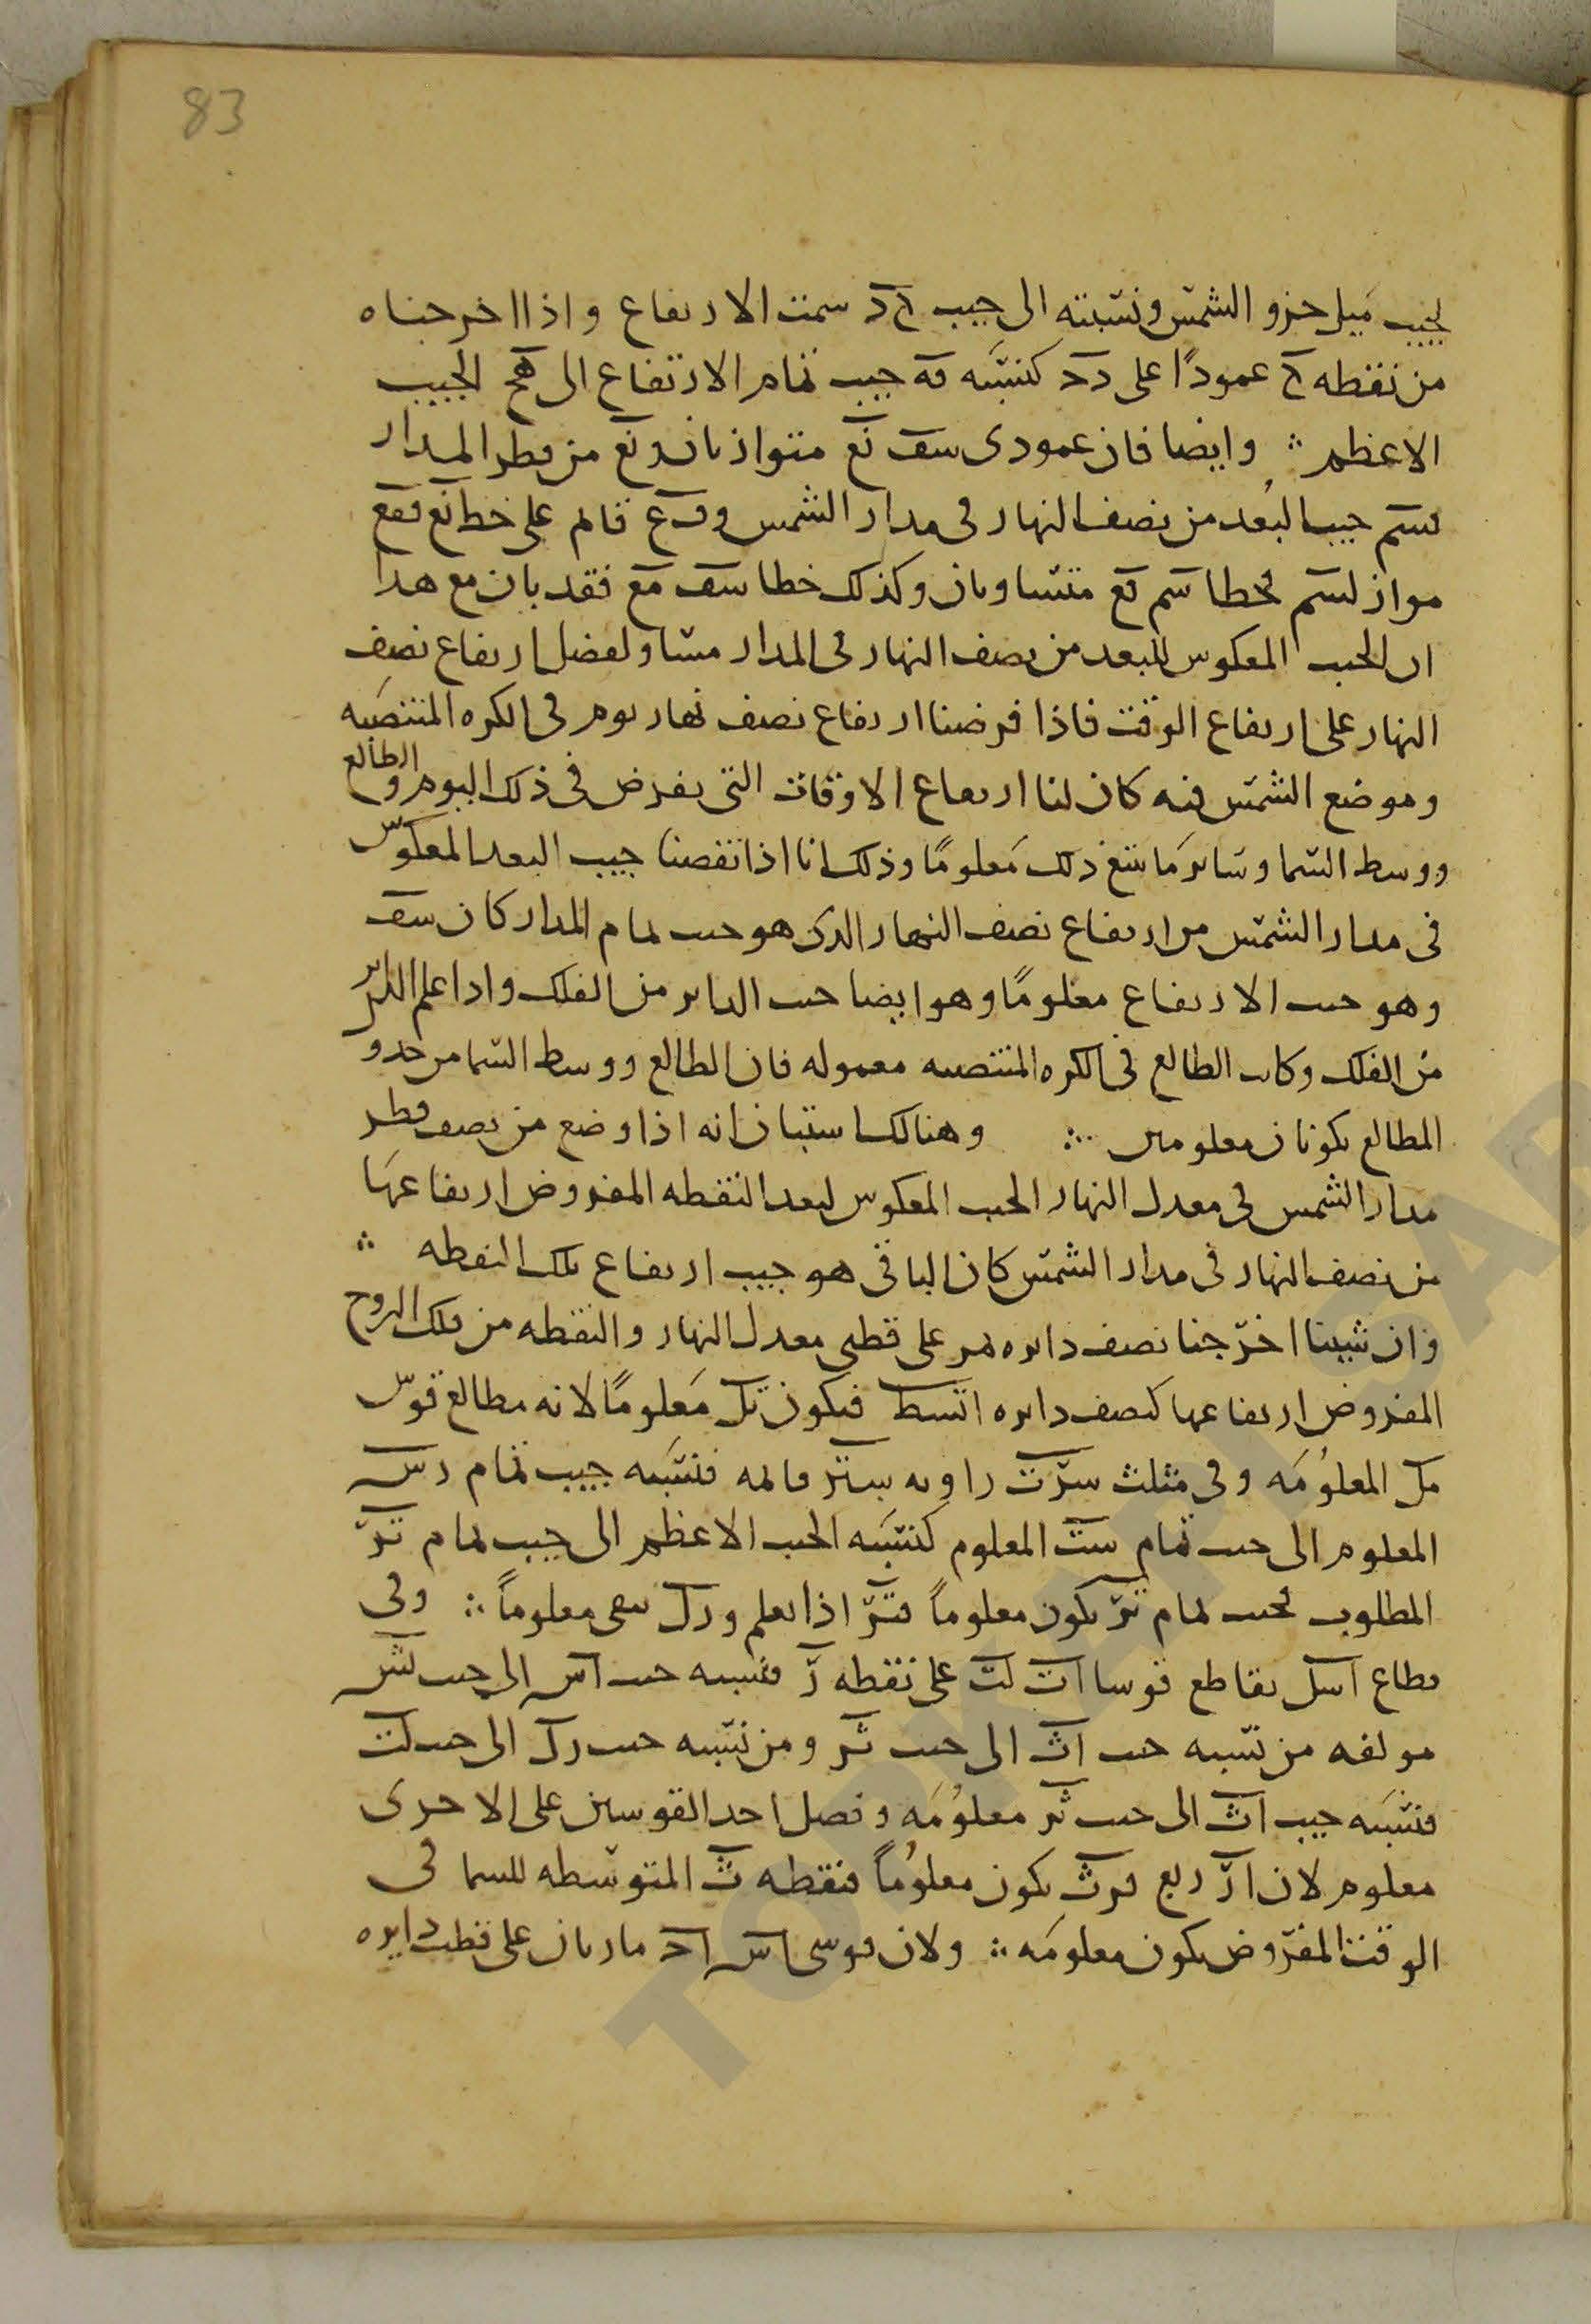 83
لجيب ميل جزو الشمس ونسبته الى جيب ح د سمت الارتفاع واذا اخرجناه
من نقطه ح عمودًا على دد كنسبه فه جيب تمام الارتفاع الى هح الجيب
الاعظم ∴ وايضا فان عمودى سف نع متوازيان ونع من قطر المدار
فسم جيب البُعد من نصف النهار فى مدار الشمس وفع قائم على خط نع ففع
مواز لسم فخطا سم فع متساويان وكذلك خطا سف مع فقد بان مع هذا
ان الجيب المعكوس للبعد من نصف النهار فى المدار مساو لفضل ارتفاع نصف
النهار على ارتفاع الوقت فاذا فرضنا ارتفاع نصف نهار يوم فى الكره المنتصبه
وموضع الشمس فيه كان لنا ارتفاع الاوقات التى تفرض فى ذلك اليوم والطالع
ووسط السما وساير ما يتبع ذلك مَعلومًا وذلك انا اذا نقصنا جيب البعد المعكوس
فى مدار الشمس من ارتفاع نصف النهار الذى هو جيب تمام المدار كان سف
وهو جيب الارتفاع معلومًا وهو ايضا جيب الداير من الفلك واذا علم الداير
من الفلك وكانت الطالع فى الكره المنتصبه معموله فان الطالع ووسط السما من جدو
المطالع يكونان معلومين ∴ وهنالك استبان انه اذا وضع من نصف قطر
مدار الشمس فى معدل النهار الجيب المعكوس لبعد النقطه المفروض ارتفاعها
من نصف النهار فى مدار الشمس كان الباقى هو جيب ارتفاع تلك النقطه ∴
وان شينا اخرجنا نصف دايره تمر على قطبى معدل النهار والنقطه من فلك البروج
المفروض ارتفاعها كنصف دايره اتسط فيكون تل مَعلومًا لانه مطالع قوس
مل المعلُومَه وفى مثلث سرت زاويه ستر قايمه فنسبه جيب تمام رس
المعلوم الى جيب تمام ست المعلوم كنسبه الجيب الاعظم الى جيب تمام تر
المطلوب فجيب تمام تر يكون معلوماً فتر اذا يعلم ورل يبقى معلوماً ∴ وفى
قطاع اسل تقاطع قوسا اث لت على نقطه ر فنسبه جيب اس الى جيب سث
مولفه من نسبه جيب اث الى جيب ثر ومن نسبه جيب رل الى جيب لت
فنسبه جيب اث الى جيب ثر معلُومَه وفضل احد القوسين على الاخرى
معلوم لان ار ربع فرث يكون معلُوماً فنقطه ث المتوسطه للسما فى
الوقت المفروض يكون معلومَه ∴ ولان قوسى اس اد ماريان على قطب دايره